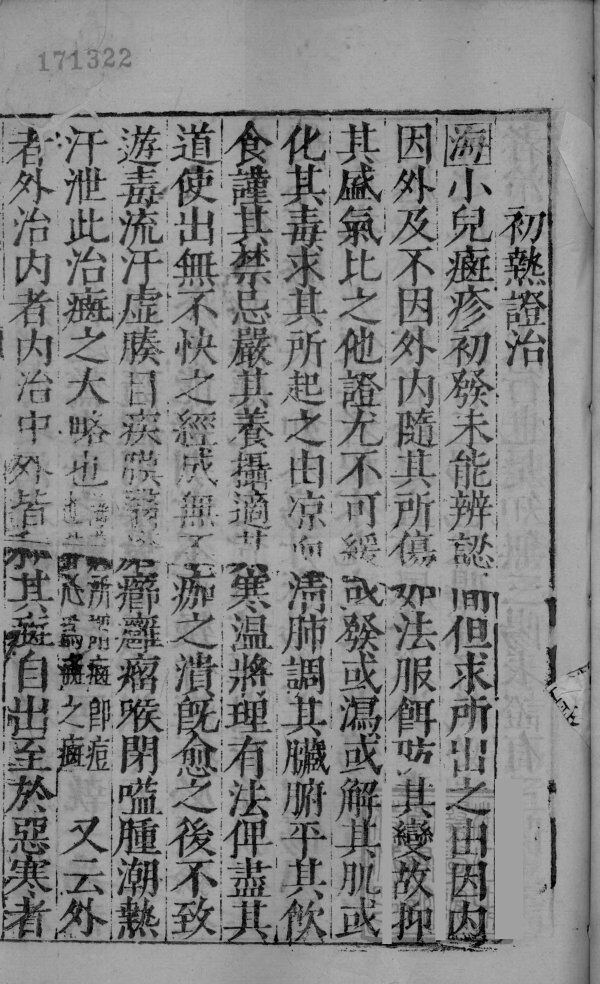 171322
初熱證治
海小兒癍疹初發未能辨認間但求所出之由因內
因外及不因外內隨其所傷如法服餌防其變故抑
其盛氣比之他證尤不可緩或發或瀉或解其肌或
化其毒求其所起之由凉血清肺調其臟腑平其飲
食謹其禁忌嚴其養攝適其寒温將理有法俾盡其
道使出無不快之經成無不痂之潰旣愈之後不致
遊毒流汗虚膝目疾膜翳瘡癤癰瘤喉閉嗌腫潮熱
汗泄此治癍之大略也 所謂癍卽痘 心為癍之癍 又云外
者外治内者内治中外皆和其癍自出至於惡寒者